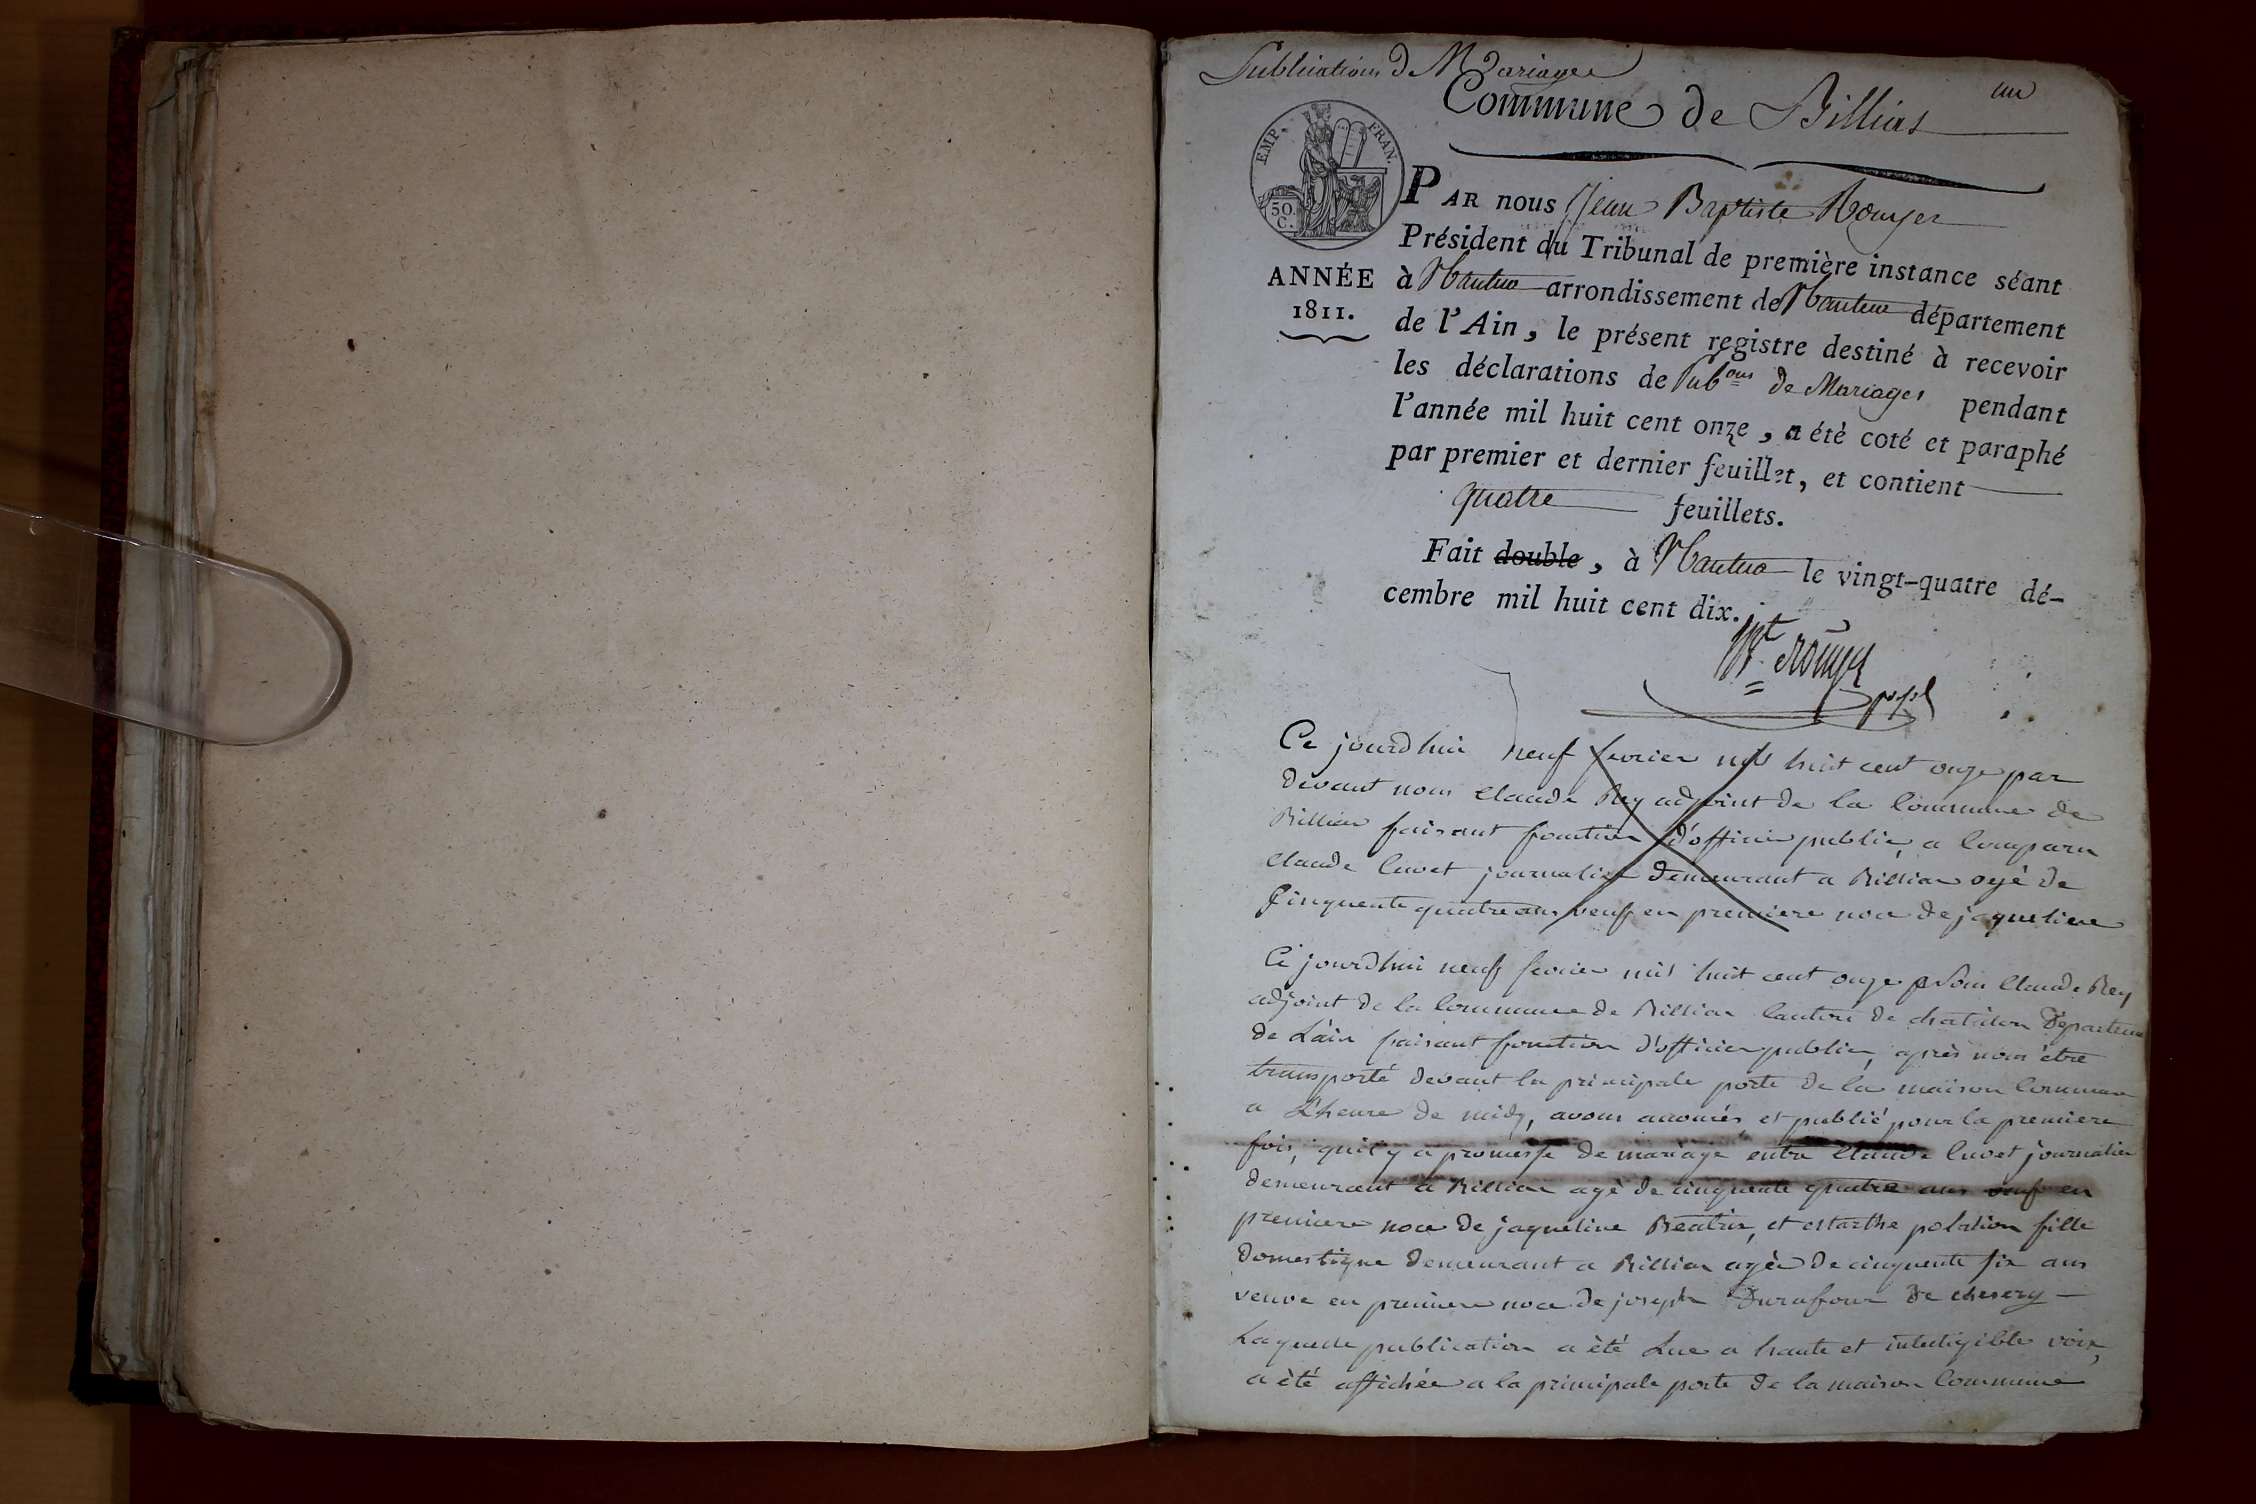 Publications de Mariages
un
Commune de Billias
EMP. FRAN.
50. C.
ANNÉE
1811.
PAR nous Jean Baptiste Rouyer
Président du Tribunal de première instance séant
à Nantua arrondissement de Nantua département
de l'Ain, le présent registre destiné à recevoir
les déclarations de Pub.ons de Mariages pendant
l'année mil huit cent onze, a été coté et paraphé
par premier et dernier feuillet, et contient
quatre feuillets.
Fait double, à Nantua le vingt-quatre dé-
cembre mil huit cent dix.
Jn Bt Rouyer
Ce jourdhui neuf fevrier mil huit cent onze par
devant nous Claude Rey adjoint de la Commune de
Billiar faisant fonction d'officier public, a Comparu
Claude Cuvet journalier demeurant a Billiar agé de
Cinquente quatre ans veuf en premiere noce de jaqueline
Ce jourdhui neuf fevrier mil huit cent onze Claude Rey
adjoint de la Commune de Billiar Canton de chatillon Departeme
de L'ain faisant fonction d'officier public, après nous être
transporté devant la principale porte de la maison Commune
a L'heure de midy, avons anoncés et publié pour la premiere
fois, qu'il y a promesse de mariage entre Claude Cuvet journalier
demeurant a Billiar agé de cinquente quatre ans veuf en
premiere noce de jaqueline Béatrix, et fille
domestique demeurant a Billiar agée de cinquente six ans
veuve en premiere noce de joseph Durafour de chesery
Laquelle publication a été Lue a haute et inteligible voix,
a été affichée a la principale porte de la maison Commune